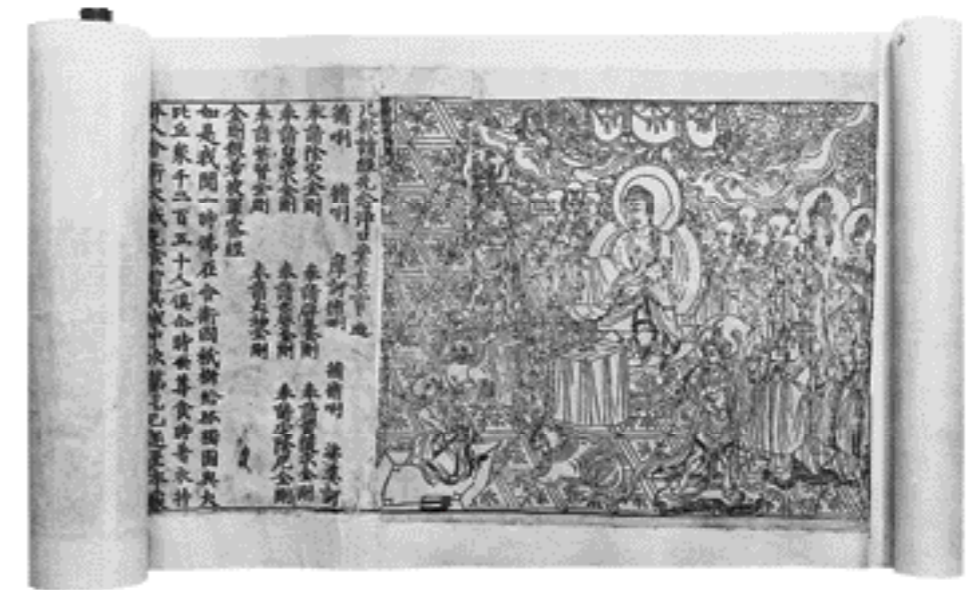 凡欲讀經先念淨口業真言一遍
脩唎 脩唎 摩訶脩唎 脩脩唎 娑婆訶
奉請除災金剛 奉請辟毒金剛 奉請黃隨求金剛
奉請白淨水金剛 奉請赤聲金剛 奉請定除厄金剛
奉請紫賢金剛 奉請大神金剛
金剛般若波羅蜜經
如是我聞一時佛在舍衛國祇樹給孤獨園與大
比丘眾千二百五十人俱尒時世尊食時著衣持
入舍衛大城乞食於其城中次第乞已還至本